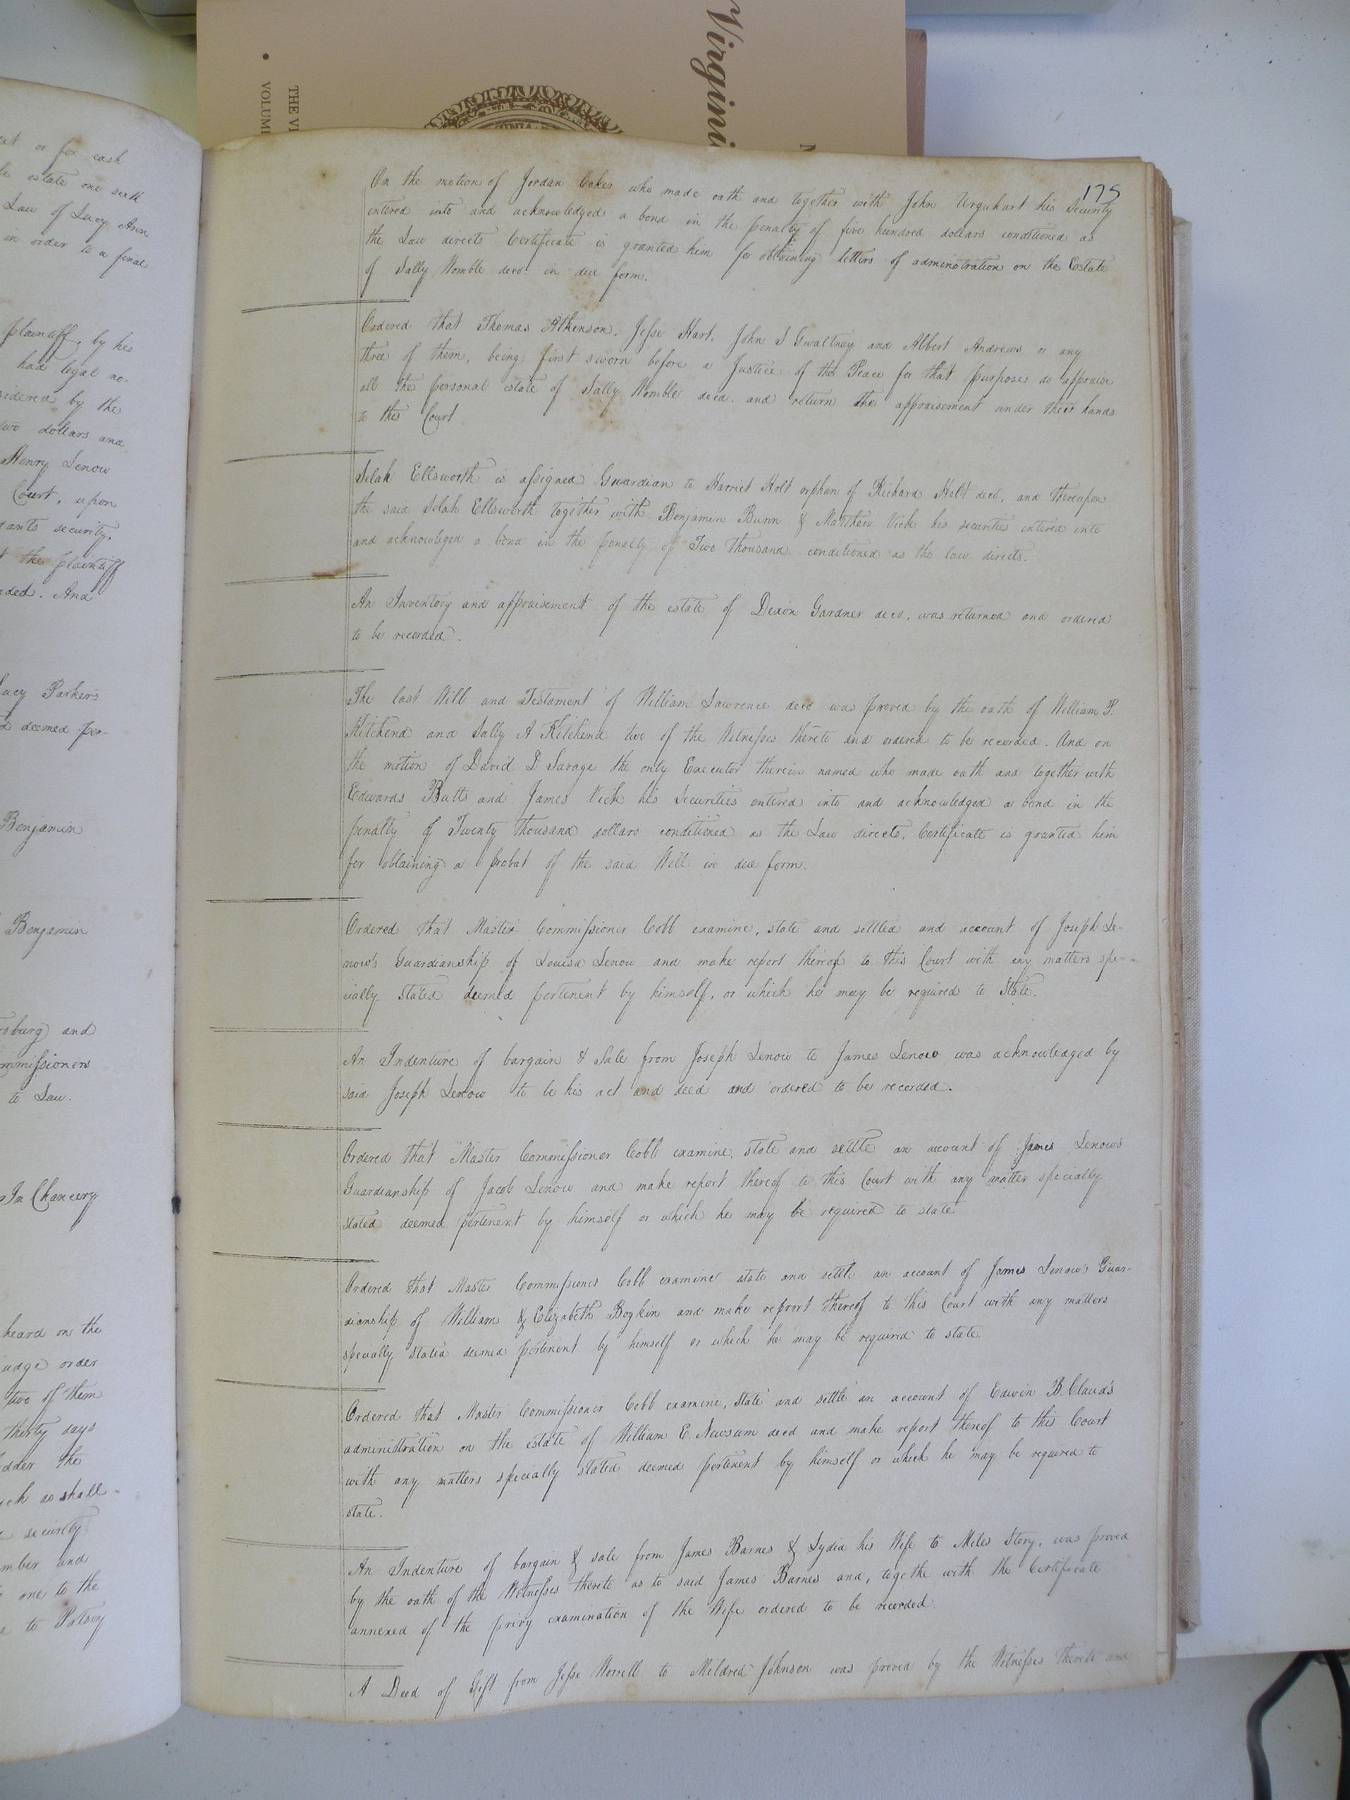 Virgini
THE VI
VOLUM
175
On the motion of Jordan Cokes who made oath and together with John Urquhart his Security
entered into and acknowledged a bond in the penalty of five hundred dollars conditioned as
the Law directs Certificate is granted him for obtaining letters of administration on the Estate
of Sally Womble decd. in due form.
Ordered that Thomas Atkenson, Jesse Hart, John S Gwaltney and Albert Andrews or any
three of them, being first sworn before a Justice of the Peace for that purpose do appraise
all the personal estate of Sally Womble decd. and return the appraisement under their hands
to the Court
Selah Ellsworth is assigned Guardian to Harriet Holt orphan of Richard Holt decd, and thereupon
the said Selah Ellsworth together with Benjamin Bunn & Matthew Vick his securities entered into
and acknowleged a bond in the penalty of Two thousand conditioned as the law directs.
An Inventory and appraisement of the estate of Dixon Gardner decd, was returned and ordered
to be recorded.
The last Will and Testament of William Lawrence decd was proved by the oath of William P.
Kitchend and Sally A Kitchend two of the Witnesses thereto and ordered to be recorded. And on
the motion of David D Savage the only Executor therein named who made oath and together with
Edwards Butts and James Vick his Securities entered into and acknowledged a bond in the
penalty of Twenty thousand dollars conditioned as the Law directs, Certificate is granted him
for obtaining a probat of the said Will in due form.
Ordered that Master Commissioner Cobb examine, state and settled and account of Joseph Le-
now's Guardianship of Louisa Lenow and make report thereof to this Court with any matters spe-
cially Stated deemed pertenent by himself, or which he may be required to State.
An Indenture of bargain & Sale from Joseph Lenow to James Lenow was acknowledged by
said Joseph Lenow to be his act and deed and ordered to be recorded.
Ordered that Master Commissioner Cobb examine, state and settle an account of James Lenow's
Guardianship of Jacob Lenow and make report thereof to this Court with any matter specially
stated deemed pertenent by himself or which he may be required to state
Ordered that Master Commissioner Cobb examine state and settle an account of James Lenow's Guar-
dianship of William & Elizabeth Boykin and make report thereof to this Court with any matters
specially stated deemed pertenent by himself or which he may be required to state
Ordered that Master Commissioner Cobb examine, State and settle an account of Edwin B. Claud's
administration on the estate of William E. Newsum decd and make report thereof to this Court
with any matters specially stated deemed pertenent by himself or which he may be required to
state.
An Indenture of bargain & sale from James Barnes & Lydia his Wife to Miles Story, was proved
by the oath of the Witnesses thereto as to said James Barnes and, togethe with the Certificate
annexed of the privy examination of the Wife ordered to be recorded.
A Deed of Gift from Jesse Worrell to Mildred Johnson was proved by the Witnesses thereto and
or for cash
estate one sixth
Law of Lucy Ann
in order to a final
plaintiff, by his
had legal no-
sidered by the
two dollars and
Henry Lenow
Court, upon
dants security,
the plaintiff
aded. And
Lucy Parker's
deemed per-
Benjamin
Benjamin
rsburg and
ommissioners
to Law.
In Chancery
heard on the
udge order
two of them
thirty days
dder the
uch as shall
security
mber and
one to the
to Patsey